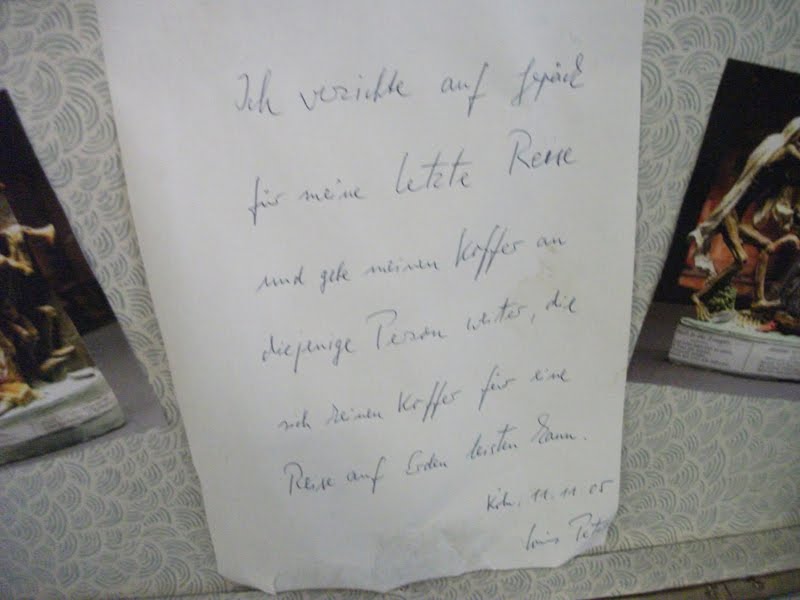 Ich verzichte auf Gepäck
für meine letzte Reise
und gebe meinen Koffer an
diejenige Person weiter, die
sich keinen Koffer für eine
Reise auf Erden leisten kann.
Köln, 11.11.05
Louis Peter